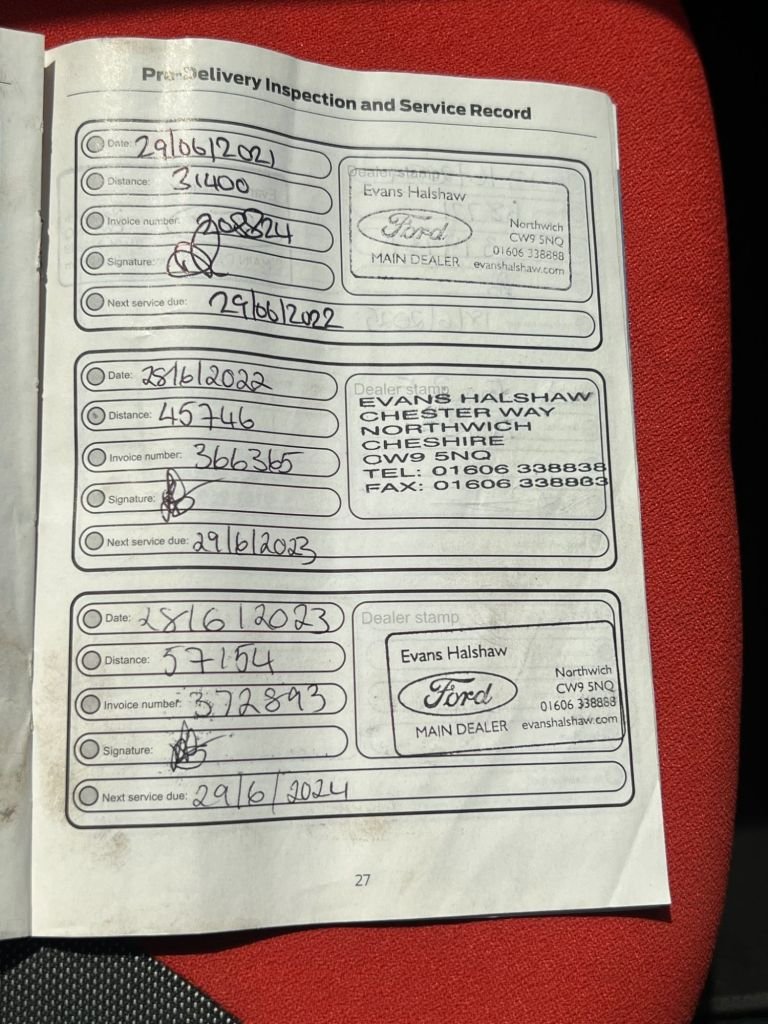 Pre-Delivery Inspection and Service Record
Date: 29/06/2021
Distance: 31400
Invoice number: 208824
Signature:
Next service due: 29/06/2022
Dealer stamp
Evans Halshaw
Ford
MAIN DEALER
Northwich
CW9 5NQ
01606 338888
evanshalshaw.com
Date: 28/6/2022
Distance: 45746
Invoice number: 366365
Signature:
Next service due: 29/6/2023
Dealer stamp
EVANS HALSHAW
CHESTER WAY
NORTHWICH
CHESHIRE
CW9 5NQ
TEL: 01606 338838
FAX: 01606 338883
Date: 28/6/2023
Distance: 57154
Invoice number: 372893
Signature:
Next service due: 29/6/2024
Dealer stamp
Evans Halshaw
Ford
MAIN DEALER
Northwich
CW9 5NQ
01606 338888
evanshalshaw.com
27